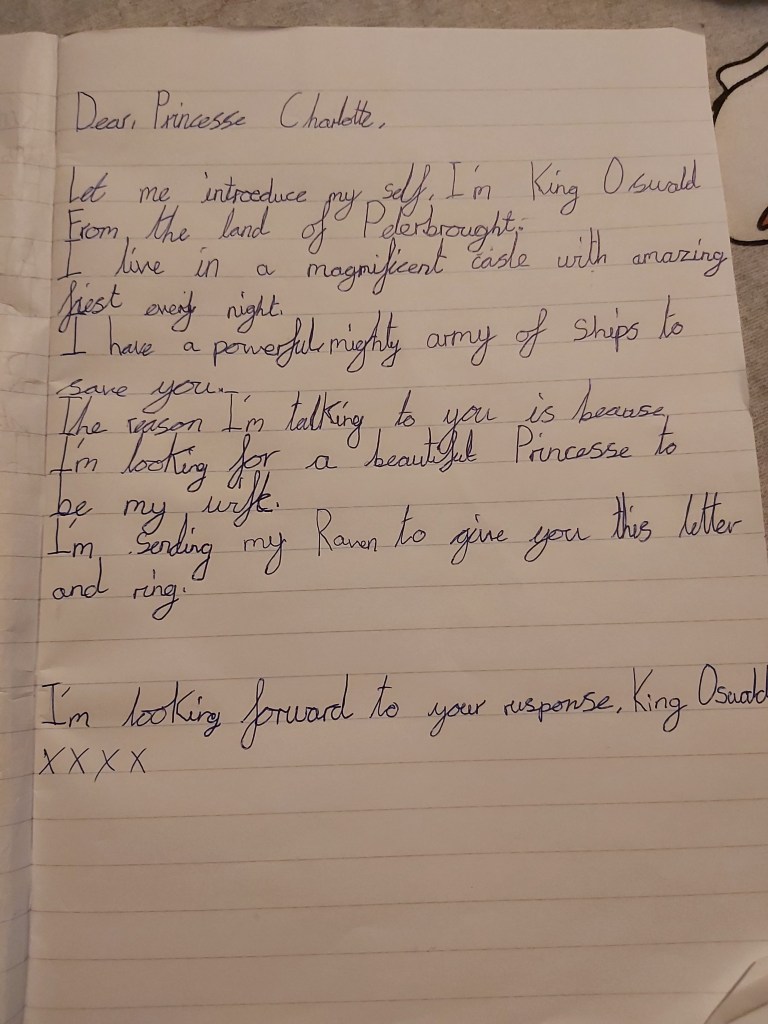 Dear, Princesse Charlotte,
Let me introeduce my self, I'm King Oswald
From the land of Peterbrought.
I live in a magnificent casle with amazing
fiest every night.
I have a powerful, mighty army of Ships to
save you.
The reason I'm talking to you is beause
I'm looking for a beautiful Princesse to
be my wife.
I'm sending my Raven to give you this letter
and ring.
I'm looking forward to your response, King Oswald
X X X X